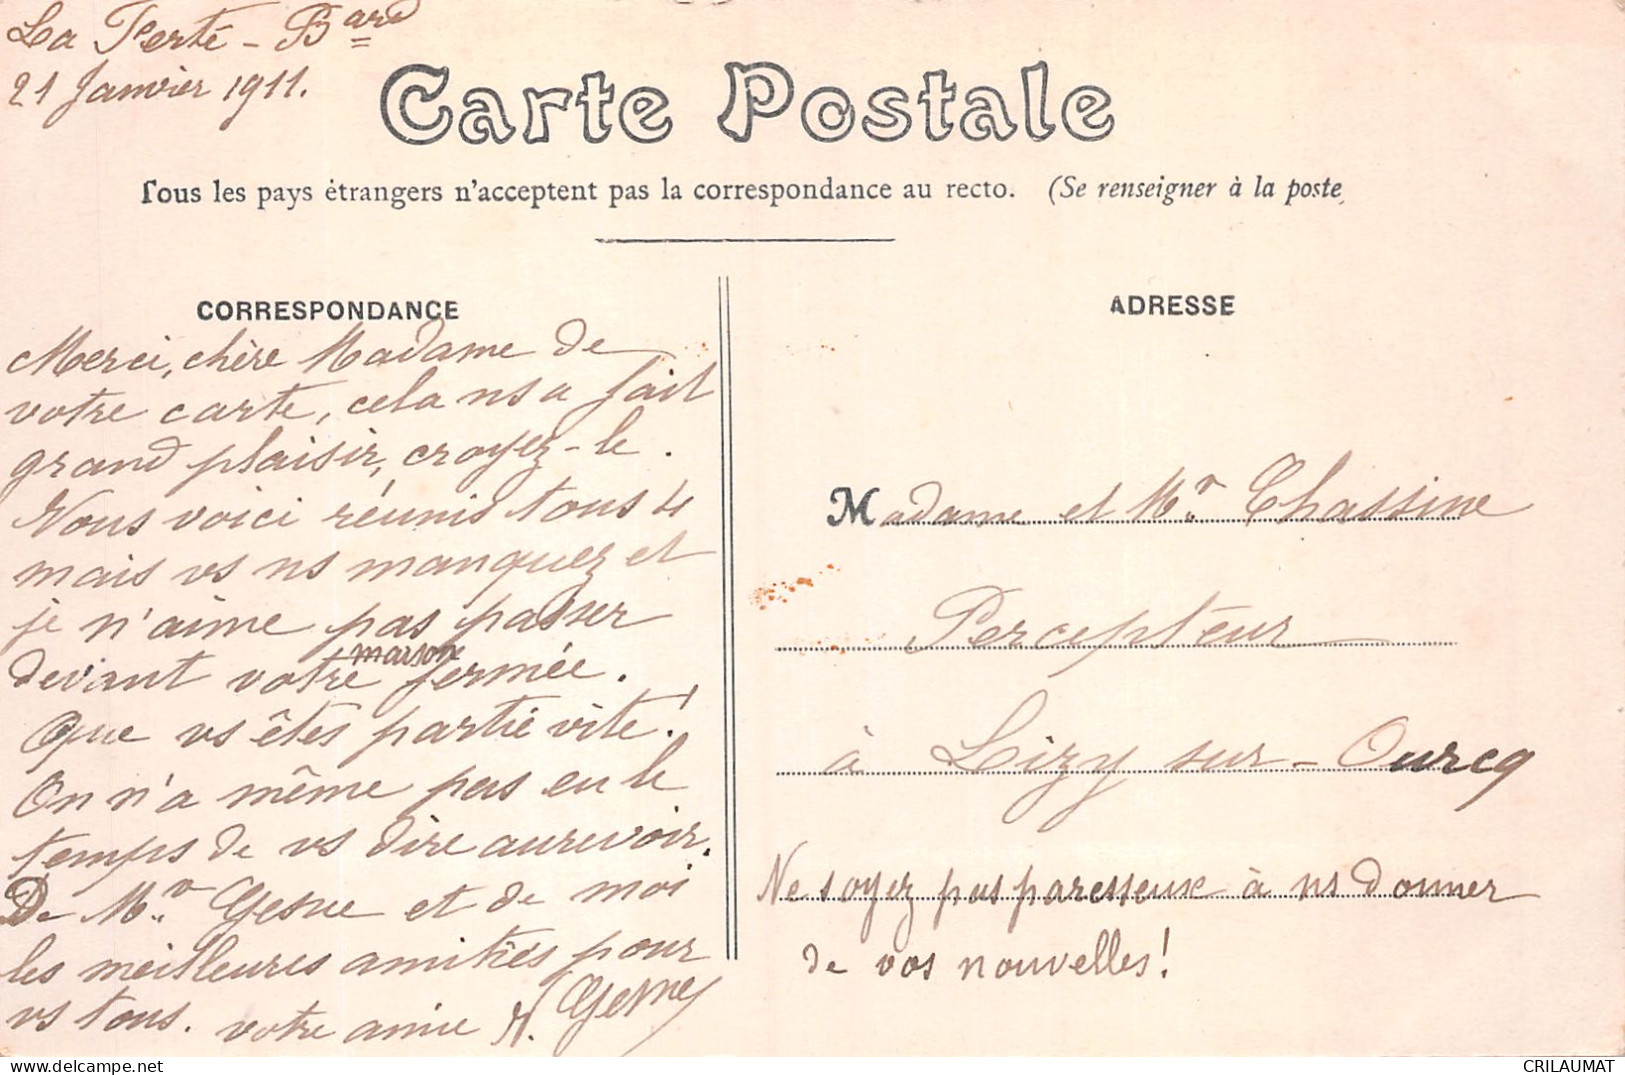 La Ferté-Bard
21 Janvier 1911.
Carte Postale
Tous les pays étrangers n'acceptent pas la correspondance au recto. (Se renseigner à la poste
CORRESPONDANCE
Merci, chère Madame de
votre carte, cela ns a fait
grand plaisir, croyez-le.
Nous voici réunis tous 4
mais vs ns manquez et
je n'aime pas passer
devant votre maison fermée.
Que vs êtes partie vite!
On n'a même pas eu le
temps de vs dire aurevoir.
De Mr Gesne et de moi
les meilleures amitiés pour
vs tous. votre amie N. Gesne
ADRESSE
Madame et Mr Chassine
Percepteur
à Lizy sur-Ourcq
Ne soyez pas paresseuse à ns donner
de vos nouvelles!
CRILAUMAT